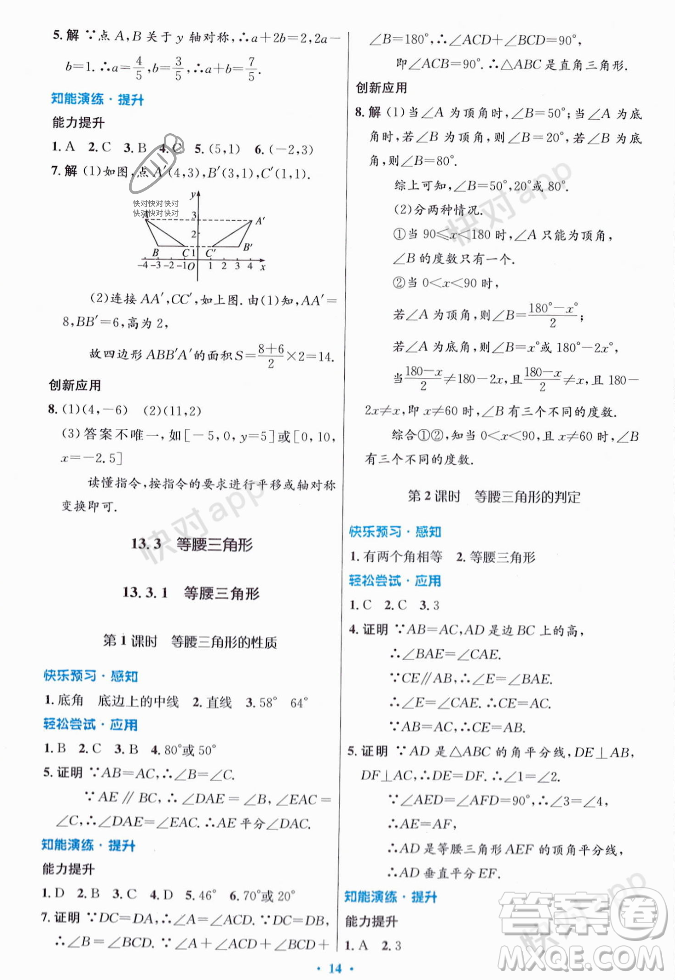 5. 解 ∵点 A,B 关于 y 轴对称,∴a+b=2,2a-
b=1. ∴a=4/5+3/5,b=7/5.
知能演练·提升
能力提升
1. A 2. C 3. B 4. C 5. (5,1) 6. (-2,3)
7. 解 (1)如图,点 A′(4,3),B′(3,1),C′(1,1).
快对快对快对
快对快对快对
y
3
2
1
A′
B C C′ B′
-4 -3 -2 -1 O 1 2 3 4 x
(2)连接 AA′,CC′,如上图. 由(1)知,AA′=
8,BB′=6,高为 2,
故四边形 ABB′A′的面积 S=(8+6)/2×2=14.
创新应用
8. (1)(4,-6) (2)(11,2)
(3) 答案不唯一,如[-5,0,y=5]或[0,10,
x=-2.5]
读懂指令,按指令的要求进行平移或轴对称
变换即可.
13.3 等腰三角形
13.3.1 等腰三角形
第1课时 等腰三角形的性质
快乐预习·感知
1. 底角 底边上的中线 2. 直线 3. 58° 64°
轻松尝试·应用
1. B 2. C 3. B 4. 80°或50°
5. 证明 ∵AB=AC,∴∠B=∠C.
∵AE∥BC,∴∠DAE=∠B,∠EAC=
∠C,∴∠DAE=∠EAC,∴AE 平分∠DAC.
知能演练·提升
能力提升
1. D 2. B 3. A 4. D 5. 46° 6. 70°或20°
7. 证明 ∵DC=DA,∴∠A=∠DCA. ∵DC=
DB,∴∠B=∠BCD. ∵∠A+∠ACD+∠BCD+
∠B=180°,∴∠ACD+∠BCD=90°,
即∠ACB=90°. ∴△ABC 是直角三角形.
创新应用
8. 解 (1)当∠A 为顶角时,∠B=50°;当∠A 为底
角时,若∠B 为顶角,则∠B=20°;若∠B 为底
角,则∠B=80°.
综上可知,∠B=50°,20°或80°.
(2)分两种情况.
①当 90≤x<180 时,∠A 只能为顶角,
∠B 的度数只有一个.
②当 0<x<90 时,
若∠A 为顶角,则∠B=(180°-x°)/2;
若∠A 为底角,则∠B=x°或∠B=180°-2x°,
当(180-x)/2≠180-2x,且(180-x)/2≠x,且 180-
2x≠x,即 x≠60 时,∠B 有三个不同的度数.
综合①②,知当 0<x<90,且 x≠60 时,∠B
有三个不同的度数.
第2课时 等腰三角形的判定
快乐预习·感知
1. 有两个角相等 2. 等腰三角形
轻松尝试·应用
1. C 2. C 3. 3
4. 证明 ∵AB=AC,AD 是边 BC 上的高,
∴∠BAE=∠CAE.
∵CE∥AB,∴∠E=∠BAE.
∴∠E=∠CAE.
∴AC=CE.
∵AB=AC,∴AB=CE.
5. 证明 ∵AD 是△ABC 的角平分线,DE⊥AB,
DF⊥AC,∴DE=DF,∠1=∠2.
∵∠AED=∠AFD=90°,∴∠3=∠4.
∴AE=AF.
∴AD 是等腰三角形 AEF 的顶角平分线.
∴AD 垂直平分 EF.
知能演练·提升
能力提升
1. A 2. 3
·14·
快对app
快对app
快对app
答案卷
MXQE.COM